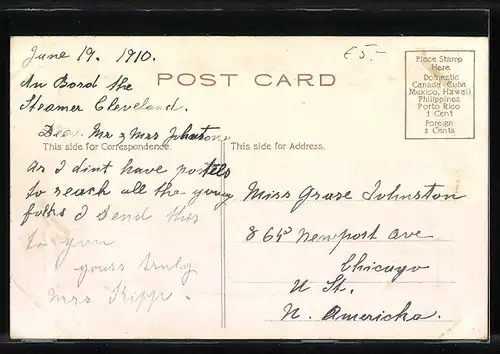 June 19. 1910.
£5.-
An Bord the
Steamer Cleveland.
POST CARD
Place Stamp
Here
Domestic
Canada Cuba
Mexico, Hawaii
Philippines
Porto Rico
1 Cent
Foreign
2 Cents
Dear Mr & Mrs Johnston
This side for Correspondence.
This side for Address.
As I dint have postels
to reach all the young
folks I send this
to you
yours truly
Mrs
Miss Grase Johnston
Newport Ave
Chicago
U St.
N. Americka.